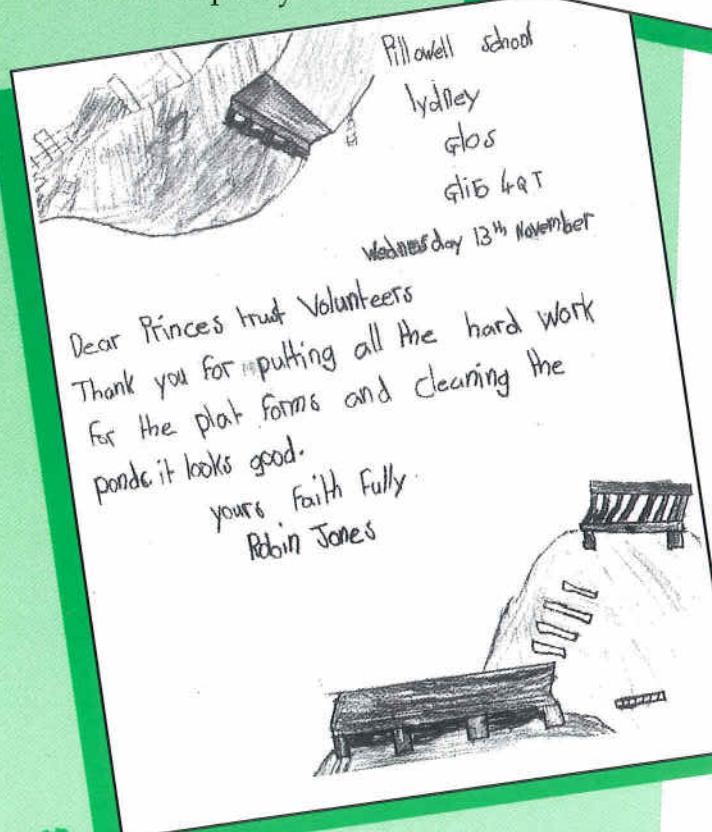 Pillowell school
lydney
Glos
Gl15 4QT
Wednesday 13th November
Dear Princes trust Volunteers
Thank you for putting all the hard work
for the plat forms and cleaning the
ponds it looks good.
yours Faith Fully.
Robin Jones